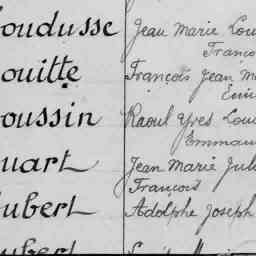 oudusse Jean Marie Lou
Franço
ouitte François Jean M
Emi
oussin Raoul Yves Loui
Emman
uart Jean Marie Jul
François
ubert Adolphe Joseph
ubert